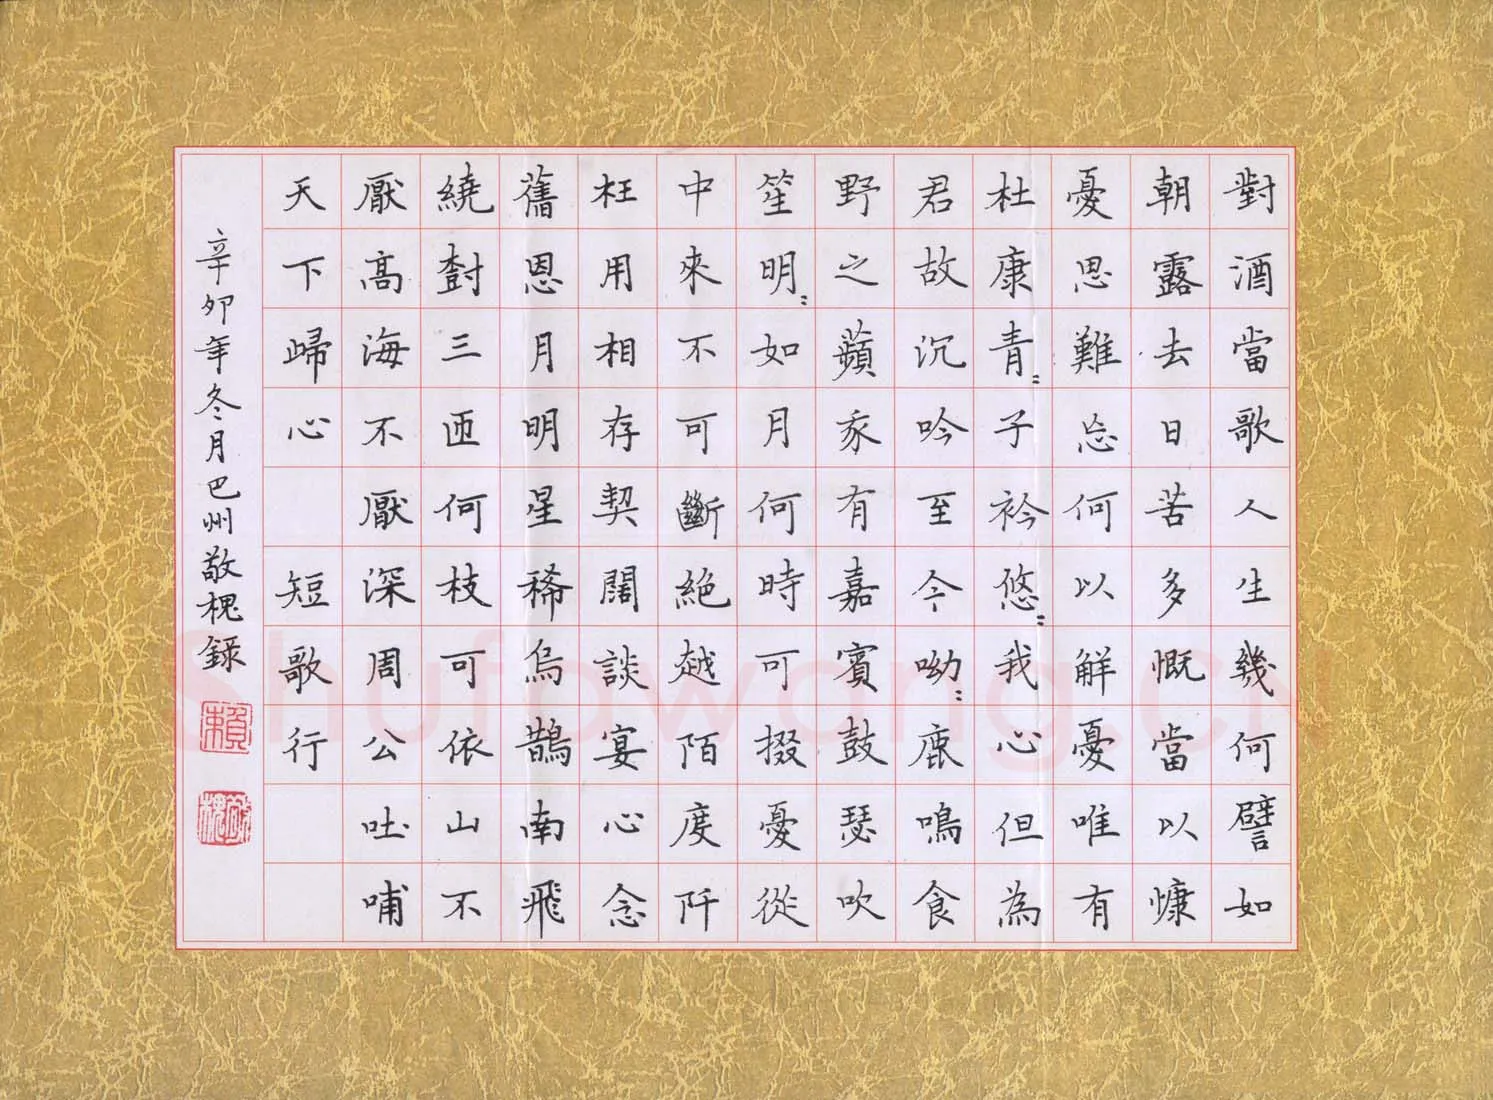 對酒當歌人生幾何譬如
朝露去日苦多慨當以慷
憂思難忘何以解憂唯有
杜康青〻子衿悠〻我心但為
君故沉吟至今呦〻鹿鳴食
野之蘋我有嘉賓鼓瑟吹
笙明〻如月何時可掇憂從
中來不可斷絕越陌度阡
枉用相存契闊談宴心念
舊恩月明星稀烏鵲南飛
繞樹三匝何枝可依山不
厭高海不厭深周公吐哺
天下歸心 短歌行
辛卯年冬月巴州敬槐錄
賴
Shufawang.cn